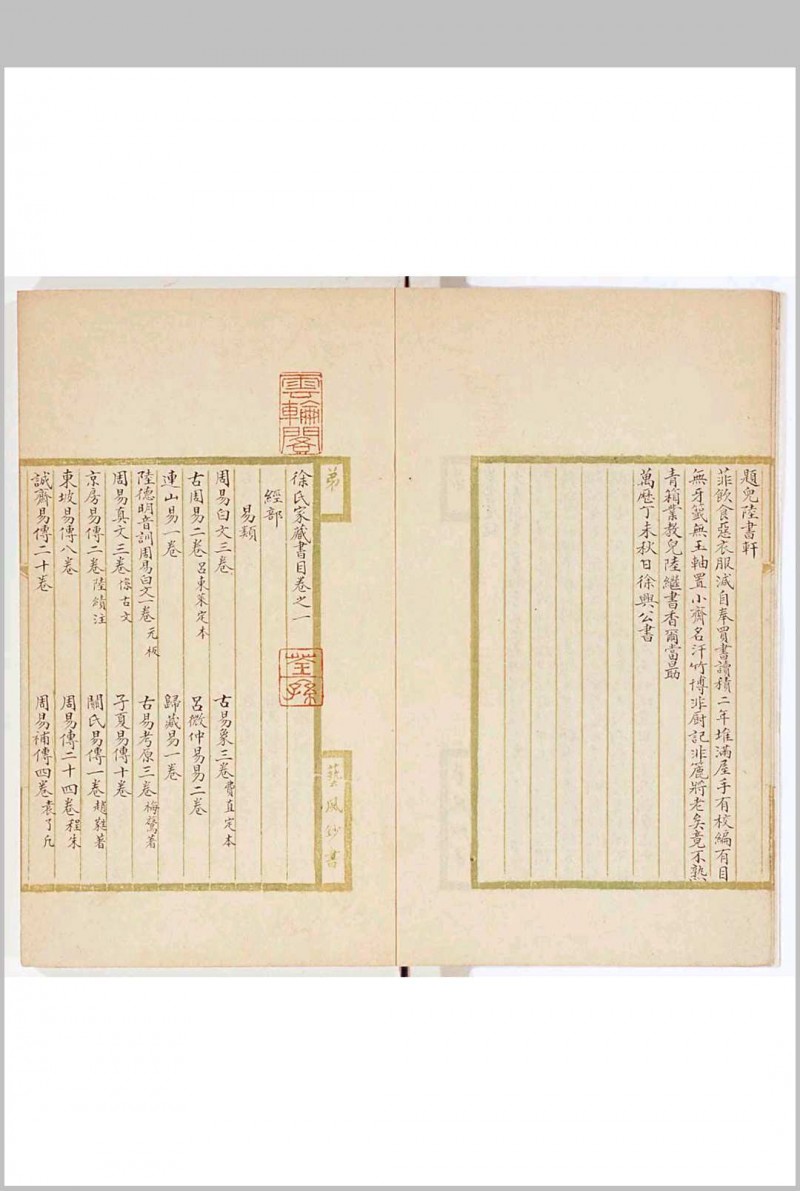 題兒陸書軒
菲飲食惡衣服減自奉買書讀積二年堆滿屋手有校編有目
無牙籤無玉軸置小齋名汗竹博非廚記非簏將老矣竟不熟
青箱業教兒陸繼書香爾當勗
萬曆丁未秋日徐興公書
弟
藝風鈔書
雲輪閣
荃孫
徐氏家藏書目卷之一
經部
易類
周易白文三卷 古易彖三卷費直定本
古周易二卷呂東萊定本 呂微仲易易二卷
連山易一卷 歸藏易一卷
陸德明音訓周易白文一卷元板 古易考原三卷梅鷟著
周易真文三卷係古文 子夏易傳十卷
京房易傳二卷陸績注 關氏易傳一卷趙蕤著
東坡易傳八卷 周易傳二十四卷程朱
誠齋易傳二十卷 周易補傳四卷袁了凡